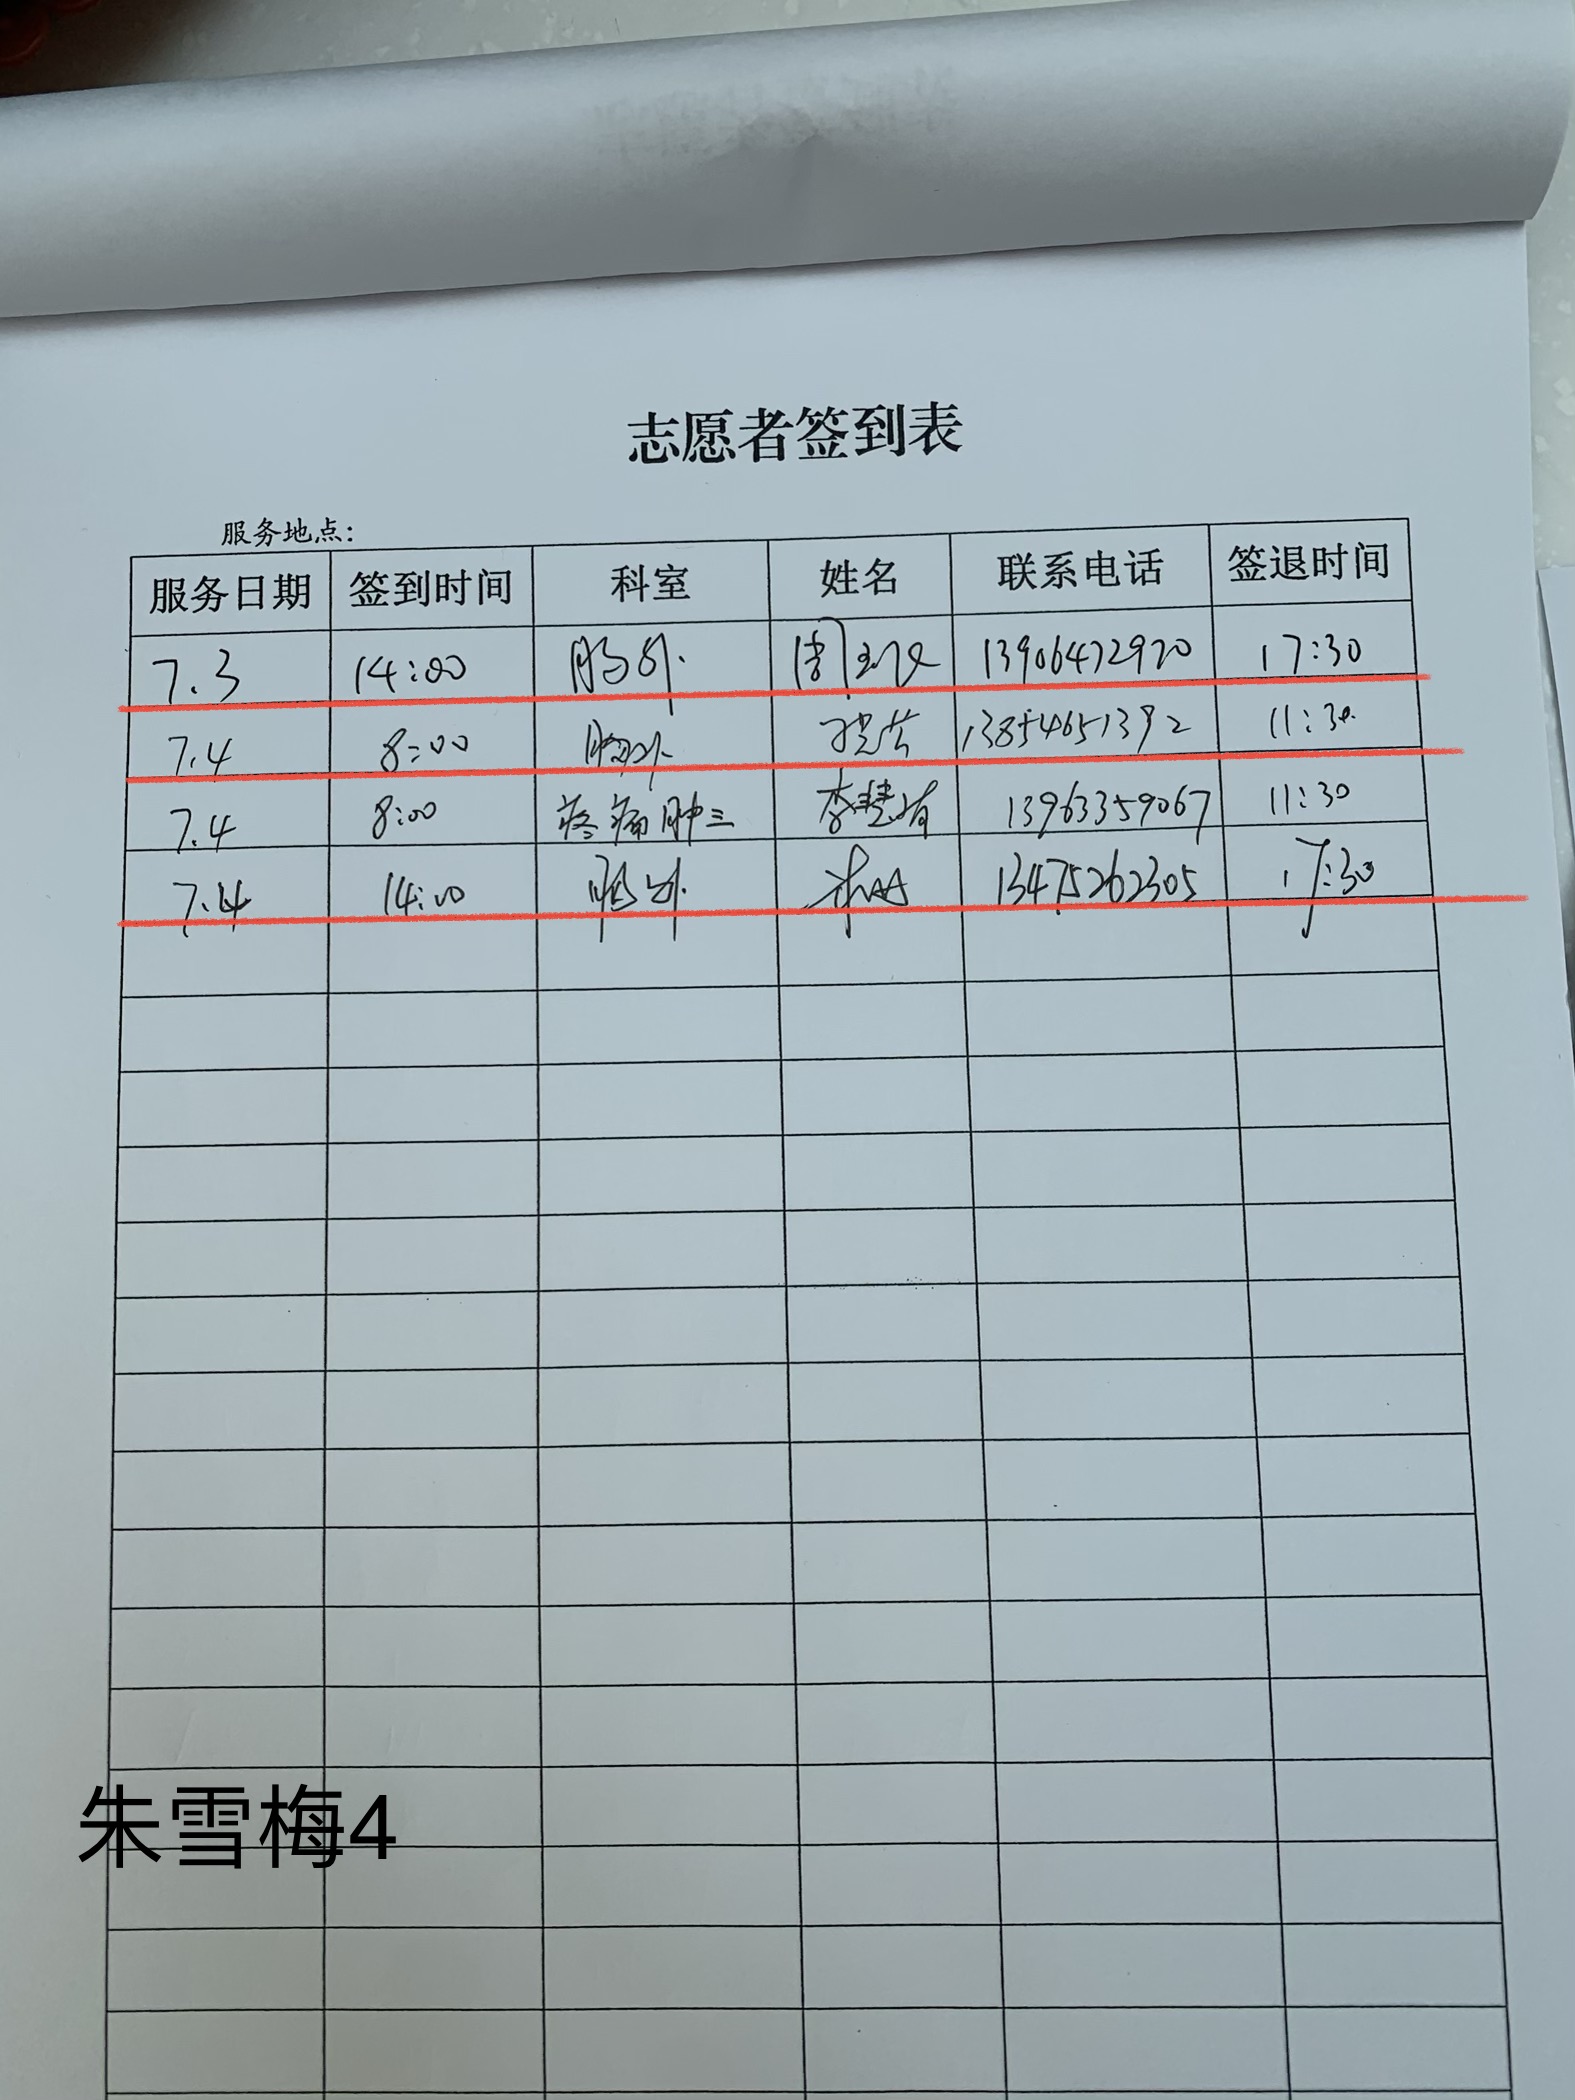 志愿者签到表
服务地点：
服务日期 签到时间 科室 姓名 联系电话 签退时间
7.3 14:00 外 周 13906472920 17:30
7.4 8:00 胸外 13854651392 11:30
7.4 8:00 疼痛肿三 李慧 13963359067 11:30
7.4 14:00 外 13475262305 17:30
朱雪梅4